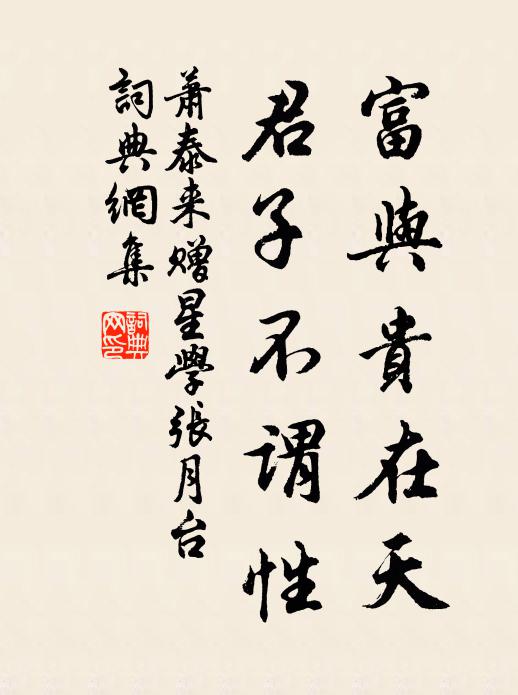 富與貴在天
君子不谓性
蕭泰来赠星學張月台
詞典網集
詞典
网印